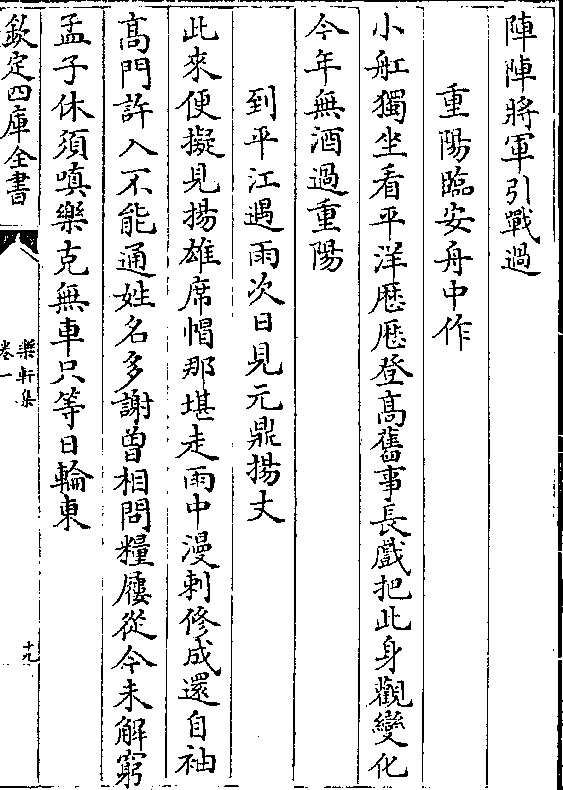 陣陣將軍引戰過
重陽臨安舟中作
小舡獨坐看平洋歴歴登髙舊事長戲把此身觀變化
今年無酒過重陽
到平江遇雨次日見元鼎揚丈
此來便擬見揚雄席帽那堪走雨中漫刺修成還自袖
髙門許入不能通姓名多謝曾相問糧屨從今未解窮
孟子休須嗔樂克無車只等日輪東
欽定四庫全書
樂軒集
卷一
十九